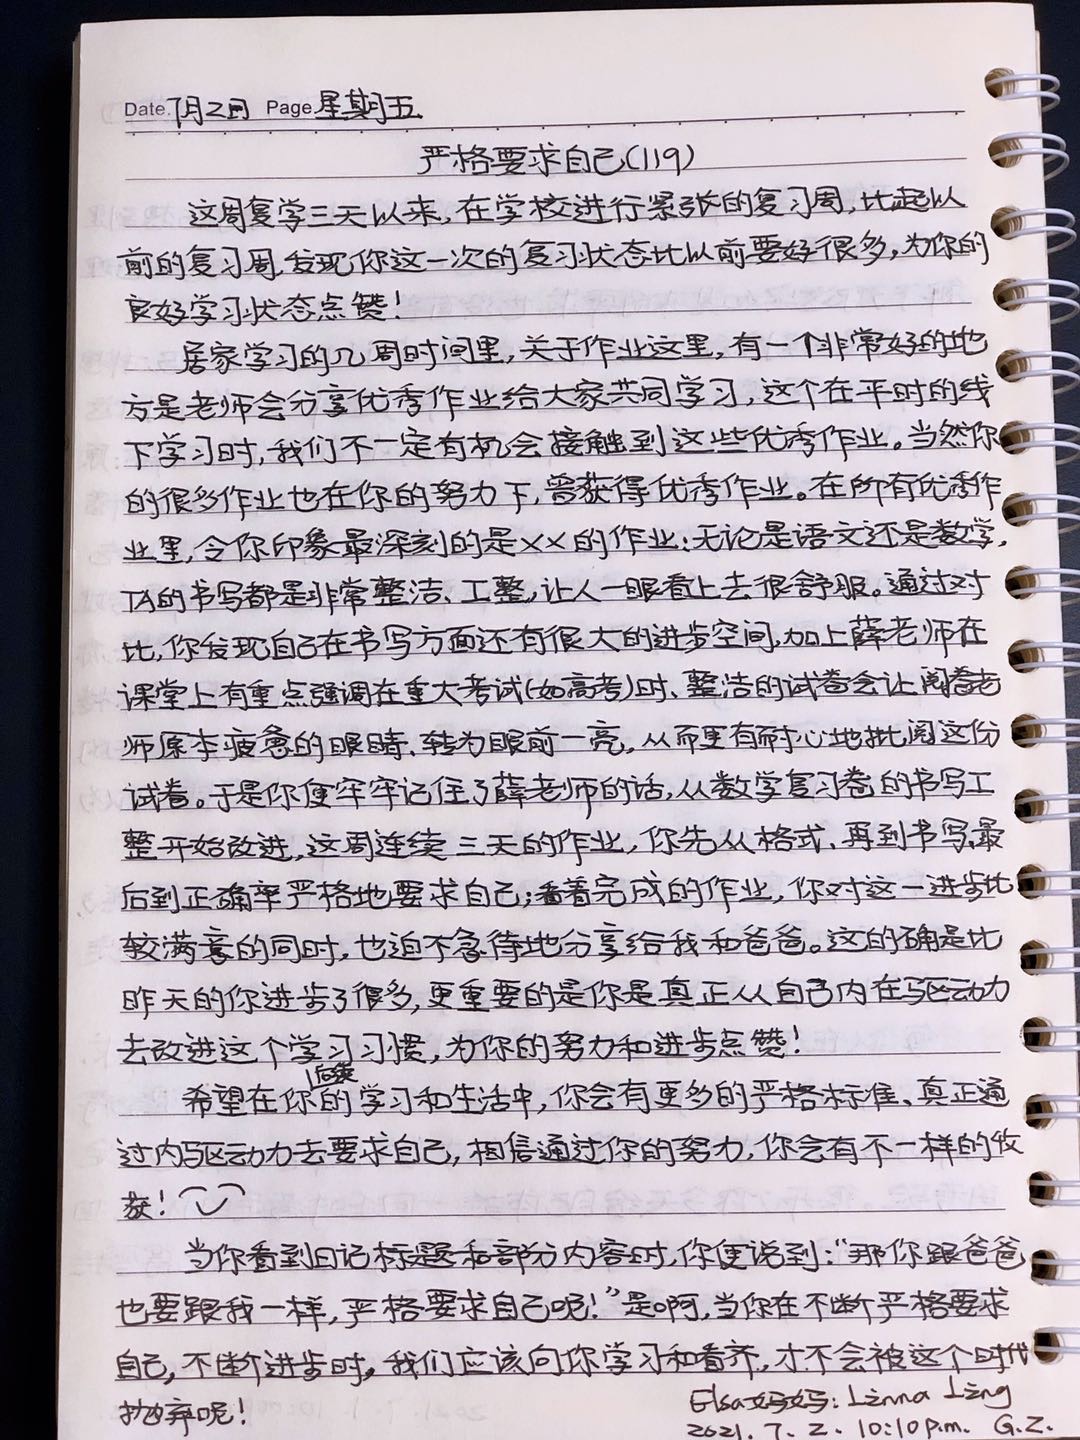 Date. 7月2日 Page 星期五
严格要求自己(119)
这周复学三天以来,在学校进行紧张的复习周,比起以
前的复习周,发现你这一次的复习状态比以前要好很多,为你的
良好学习状态点赞!
居家学习的几周时间里,关于作业这里,有一个非常好的地
方是老师会分享优秀作业给大家共同学习,这个在平时的线
下学习时,我们不一定有机会接触到这些优秀作业。当然你
的很多作业也在你的努力下,曾获得优秀作业。在所有优秀作
业里,令你印象最深刻的是××的作业:无论是语文还是数学,
TA的书写都是非常整洁、工整,让人一眼看上去很舒服。通过对
比,你发现自己在书写方面还有很大的进步空间,加上薛老师在
课堂上有重点强调在重大考试(如高考)时、整洁的试卷会让阅卷老
师原本疲惫的眼睛、转为眼前一亮,从而更有耐心地批阅这份
试卷。于是你便牢牢记住了薛老师的话,从数学复习卷的书写工
整开始改进,这周连续三天的作业,你先从格式、再到书写,最
后到正确率严格地要求自己;看着完成的作业,你对这一进步比
较满意的同时,也迫不急待地分享给我和爸爸。这的确是比
昨天的你进步了很多,更重要的是你是真正从自己内在驱动力
去改进这个学习习惯,为你的努力和进步点赞!
希望在你后续的学习和生活中,你会有更多的严格标准、真正通
过内驱动力去要求自己,相信通过你的努力,你会有不一样的收
获!
当你看到日记标题和部分内容时,你便说到:“那你跟爸爸
也要跟我一样,严格要求自己呢!”是啊,当你在不断严格要求
自己,不断进步时,我们应该向你学习和看齐,才不会被这个时代
抛弃呢!
Elsa妈妈:Linna Ling
2021.7.2. 10:10p.m. G.Z.